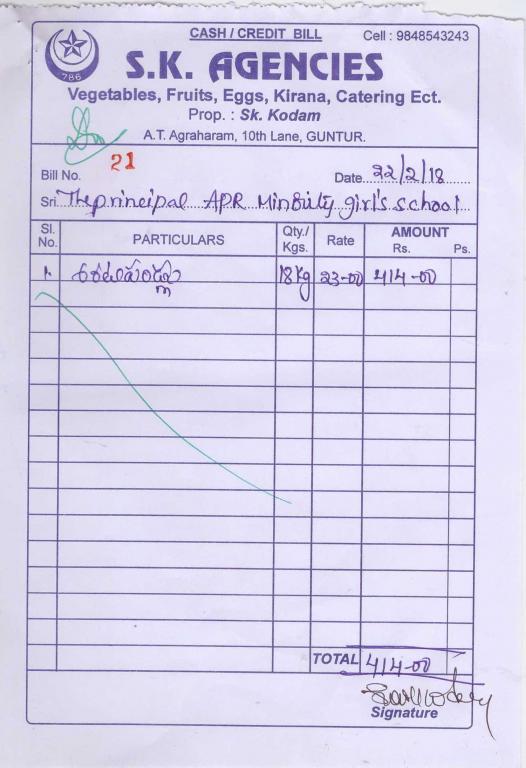 CASH / CREDIT BILL
Cell : 9848543243
786
S.K. AGENCIES
Vegetables, Fruits, Eggs, Kirana, Catering Ect.
Prop. : Sk. Kodam
A.T. Agraharam, 10th Lane, GUNTUR.
Bill No. 21 Date 22/2/18
Sri The principal APR Minority girl's school
Sl. No. PARTICULARS Qty./ Kgs. Rate AMOUNT Rs. Ps.
1. 18 Kg 23-00 414-00
TOTAL 414-00
Signature